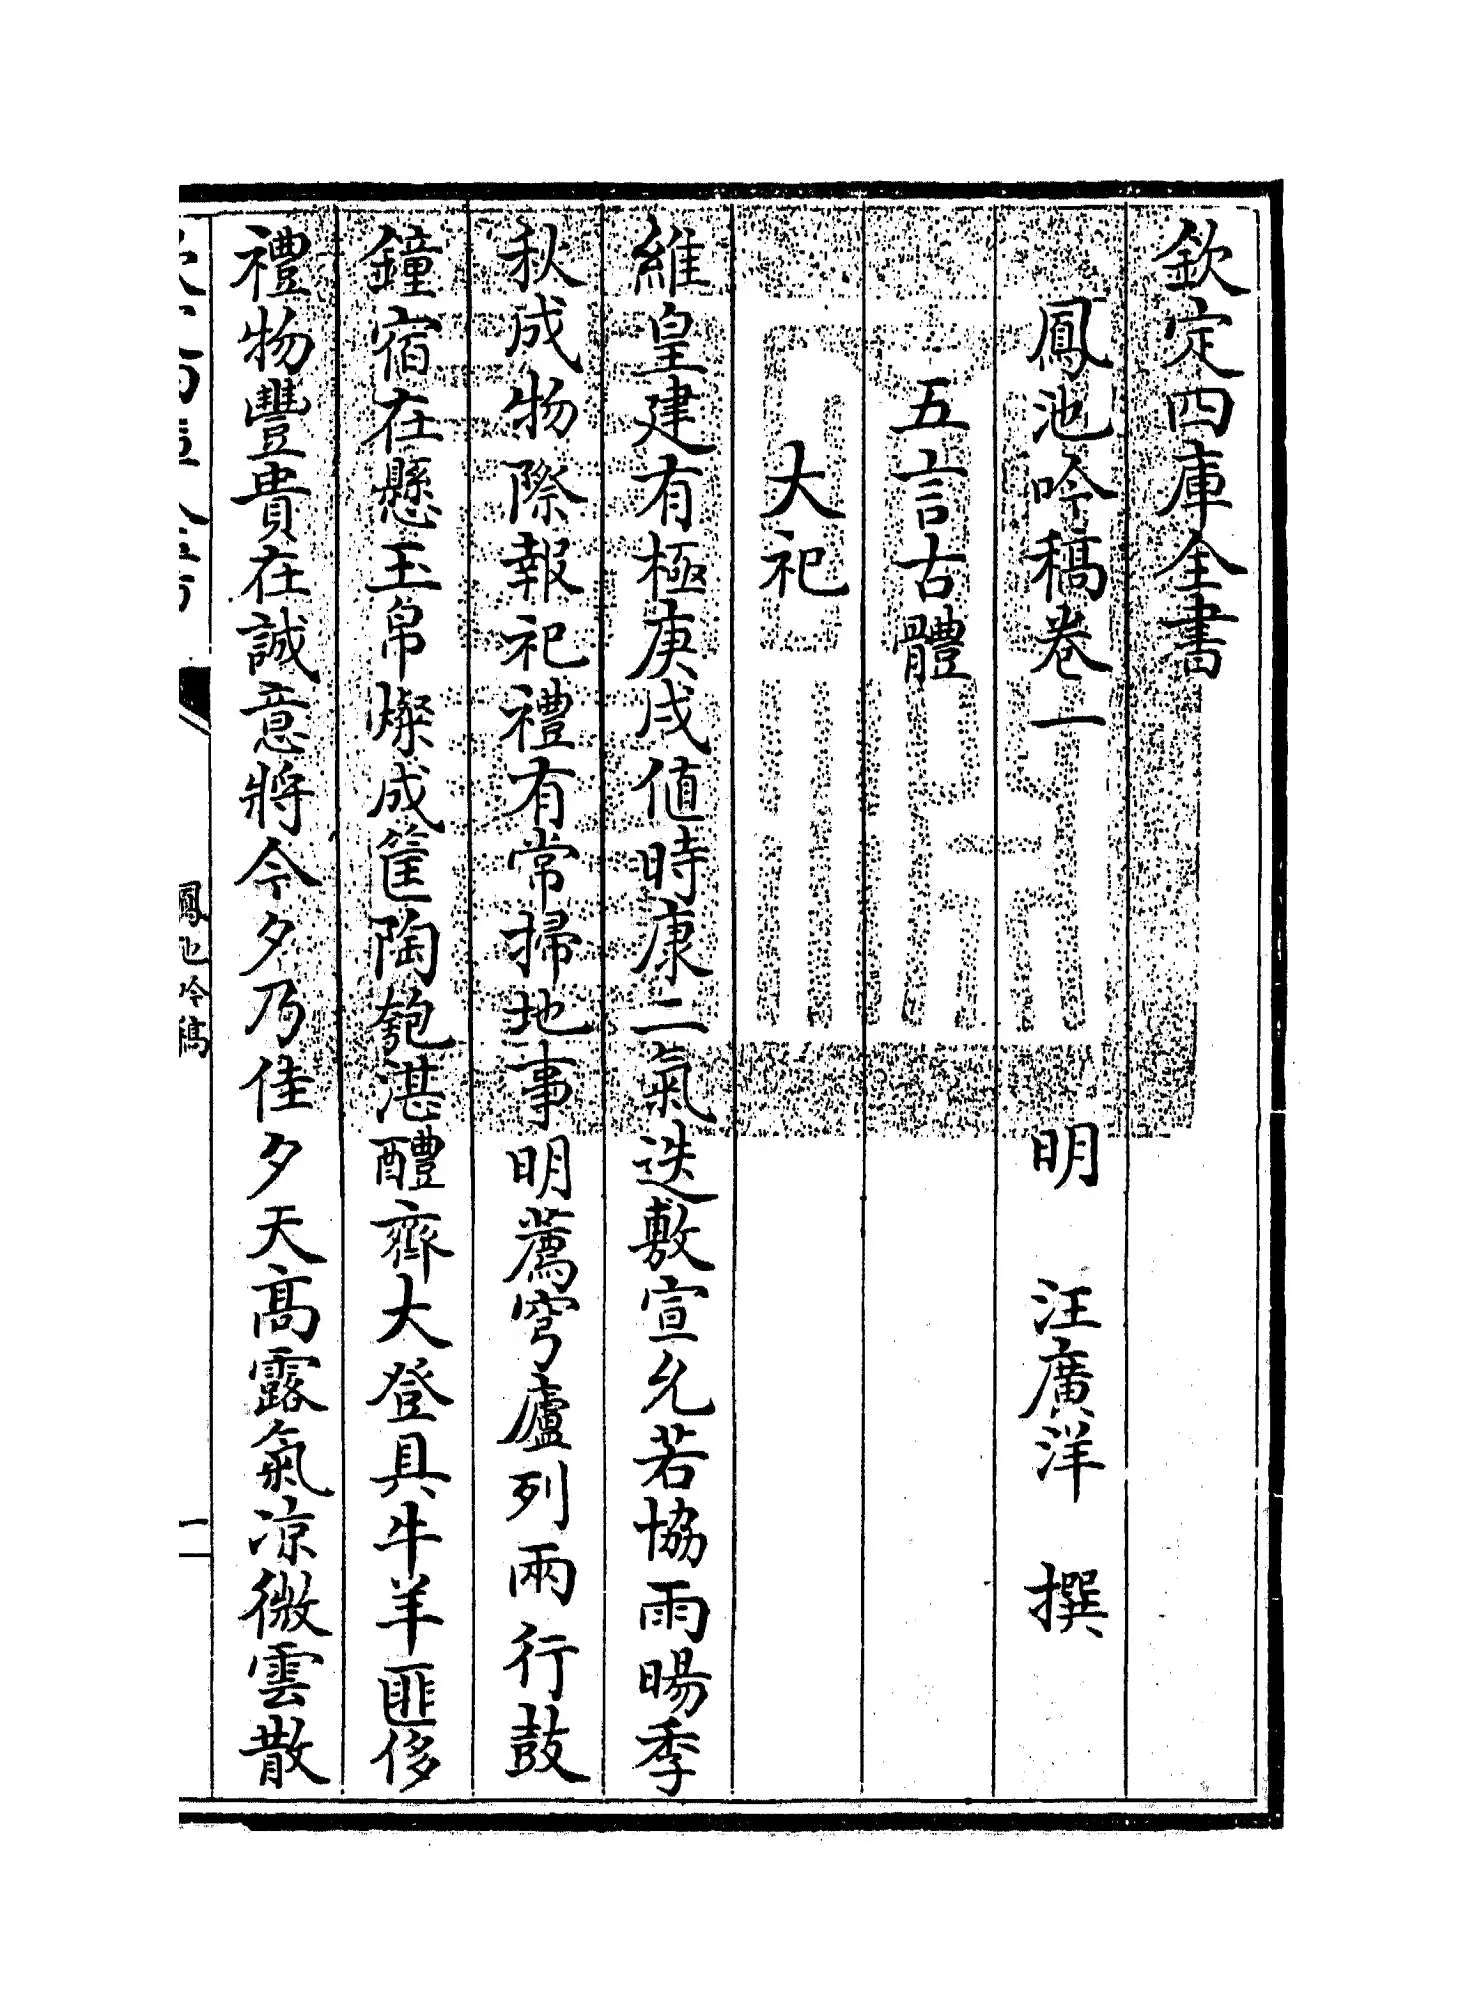 欽定四庫全書
鳳池吟稿卷一　明　汪廣洋　撰
五言古體
大祀
維皇建有極庚戌值時康二氣迭敷宣允若協雨暘季
秋成物際報祀禮有常掃地事明薦穹廬列兩行鼓
鐘宿在懸玉帛燦成筐陶匏湛醴齊大登具牛羊匪侈
禮物豐貴在誠意將今夕乃佳夕天髙露氣凉微雲散
鳳池吟稿
一